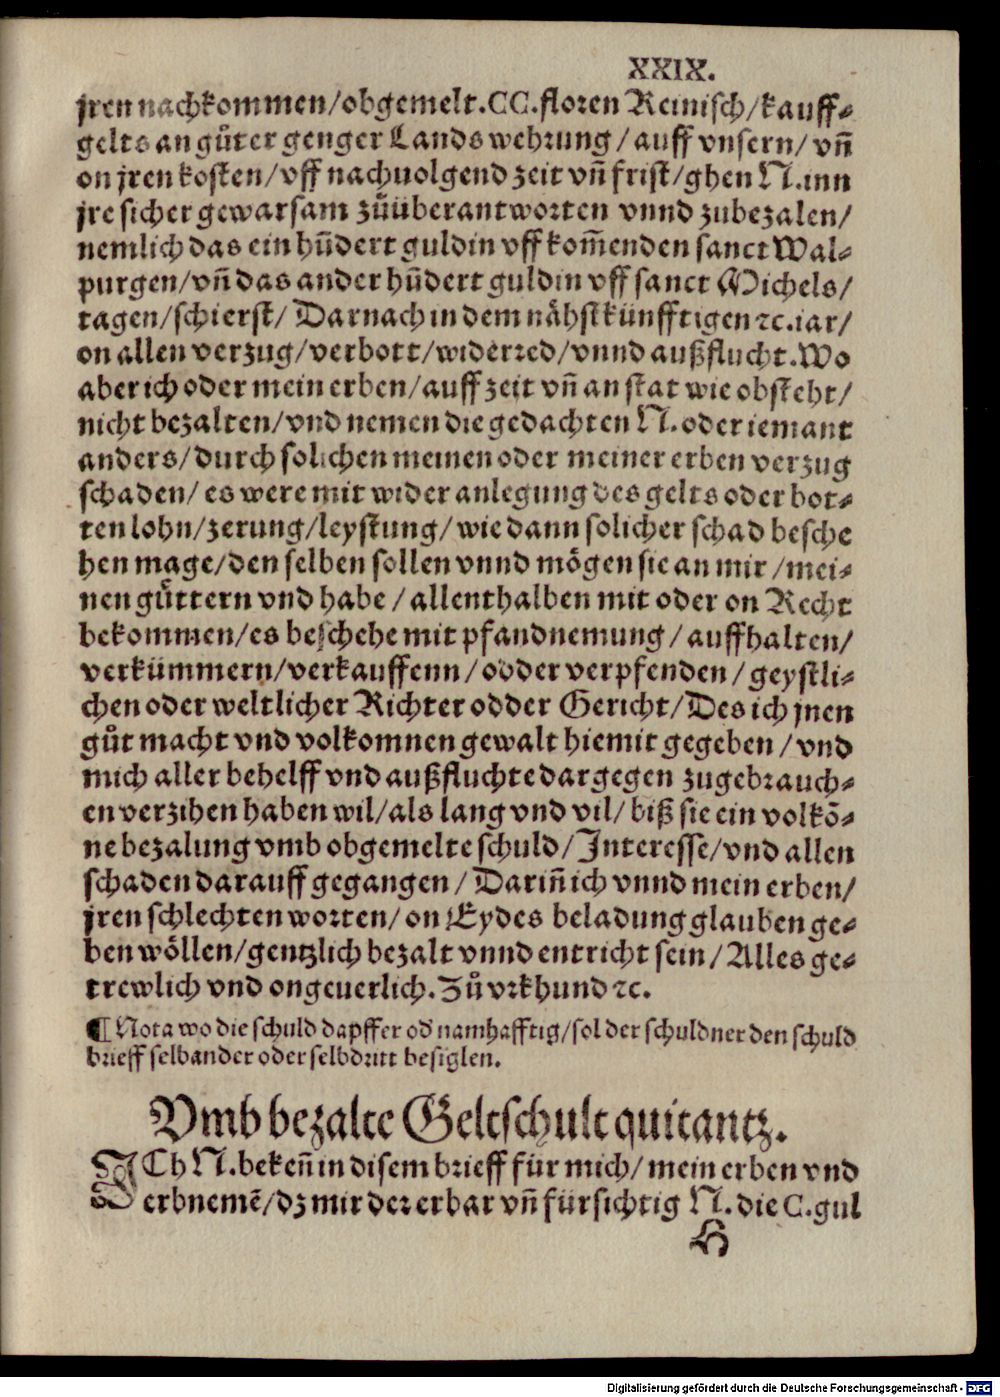 XXIX.
jren nachkommen/obgemelt.CC.floꝛen Reinisch/kauff⸗
gelts an guͤter genger Lands wehꝛung/auff vnsern/vñ
on jren kosten/vff nachuolgend zeit vñ frist/ghen N.inn
jre sicher gewarsam zuͤüberantwoꝛten vnnd zubezalen/
nemlich das ein hũdert guldin vff kom̃enden sanct Wal⸗
purgen/vñ das ander hũdert guldin vff sanct Michels/
tagen/schierst/Darnach in dem nähstkünfftigen ꝛc.iar/
on allen verzug/verbott/widerꝛed/vnnd außflucht.Wo
aber ich oder mein erben/auff zeit vñ an stat wie obsteht/
nicht bezalten/vnd nemen die gedachten N.oder iemant
anders/durch solichen meinen oder meiner erben verzug
schaden/es were mit wider anlegung des gelts oder bot⸗
ten lohn/zerung/leystung/wie dann solicher schad besche
hen mage/den selben sollen vnnd mögen sie an mir/mei⸗
nen guͤttern vnd habe/allenthalben mit oder on Recht
bekommen/es beschehe mit pfandnemung/auffhalten/
verkümmern/verkauffenn/odder verpfenden/geystli⸗
chen oder weltlicher Richter odder Gericht/Des ich jnen
guͤt macht vnd volkomnen gewalt hiemit gegeben/vnd
mich aller behelff vnd außfluchte dargegen zugebꝛauch⸗
en verzihen haben wil/als lang vnd vil/biß sie ein volkõ⸗
ne bezalung vmb obgemelte schuld/Interesse/vnd allen
schaden darauff gegangen/Dariñ ich vnnd mein erben/
jren schlechten woꝛten/on Eydes beladung glauben ge⸗
ben wöllen/gentzlich bezalt vnnd entricht sein/Alles ge⸗
trewlich vnd ongeuerlich.Zuͤ vꝛkhund ꝛc.
¶ Nota wo die schuld dapffer od̕ namhafftig/sol der schuldner den schuld
bꝛieff selbander oder selbdꝛitt besiglen.
Vmb bezalte Geltschult quitantz.
ICh N.bekeñ in disem bꝛieff für mich/mein erben vnd
erbnemẽ/dz mir der erbar vñ fürsichtig N.die C.gul
H
Digitalisierung gefördert durch die Deutsche Forschungsgemeinschaft - DFG